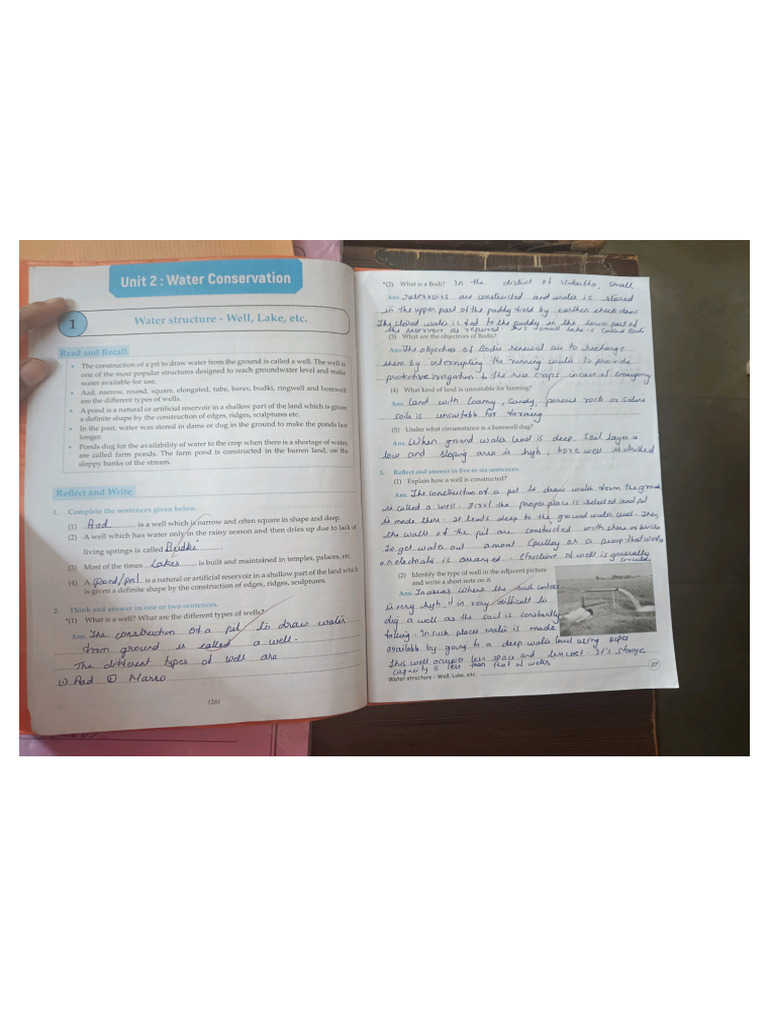 Unit 2 : Water Conservation
1
Water structure - Well, Lake, etc.
Read and Recall
• The construction of a pit to draw water from the ground is called a well. The well is
one of the most popular structures designed to reach groundwater level and make
water available for use.
• Aad, narrow, round, square, elongated, tube, barer, budki, ringwell and borewell
are the different types of wells.
• A pond is a natural or artificial reservoir in a shallow part of the land which is given
a definite shape by the construction of edges, ridges, sculptures etc.
• In the past, water was stored in dams or dug in the ground to make the ponds last
longer.
• Ponds dug for the availability of water to the crop when there is a shortage of water,
are called farm ponds. The farm pond is constructed in the barren land, on the
sloppy banks of the stream.
Reflect and Write
1. Complete the sentences given below.
(1) Aad is a well which is narrow and often square in shape and deep.
(2) A well which has water only in the rainy season and then dries up due to lack of
living springs is called Budki
(3) Most of the times Lakes is built and maintained in temples, palaces, etc.
(4) A pond/ is a natural or artificial reservoir in a shallow part of the land which
is given a definite shape by the construction of edges, ridges, sculptures.
2. Think and answer in one or two sentences.
*(1) What is a well? What are the different types of wells?
Ans. The construction of a pit to draw water
from ground is called a well.
The different types of well are
1) Aad 2)
(26)
*(2) What is a Bodi? In the district of small
Ans. reservoirs are constructed and water is stored
in the upper part of the paddy field by earthen check dams
The stored water is fed to the paddy in the lower part of
the reservoir as required this small lake is called Bodi
(3) What are the objectives of Bodis?
Ans. The objective of Bodis renewal are to recharge
them by intercepting the running water To provide
protective irrigation to the rice crops in case of emergency
(4) What kind of land is unsuitable for farming?
Ans. Land with loamy, sandy, porous rock or saline
soils is unsuitable for farming
(5) Under what circumstance is a borewell dug?
Ans. When ground water level is deep, soil layer is
low and sloping area is high, bore well is drilled
3. Reflect and answer in five or six sentences.
(1) Explain how a well is constructed?
Ans. The construction of a pit to draw water from the ground
is called a well. First the proper place is selected and pit
is made there. It leads deep to the ground water level. Then
the walls of the pit are constructed with stone or bricks
To get water out a pulley or a pump that works
on electricity is arranged. structure of well is generally
(2) Identify the type of well in the adjacent picture
and write a short note on it.
Ans. In areas where the
is very high, it is very difficult to
dig a well as the soil is constantly
falling. In such place water is made
available by going to a deep water level using pipes
This well occupies less space and less cost. It's storage
capacity is less than that of wells
Water structure - Well, Lake, etc.
27